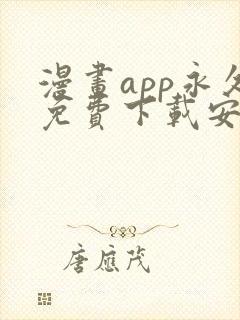 漫畫app永久
免費下載安
唐應茂